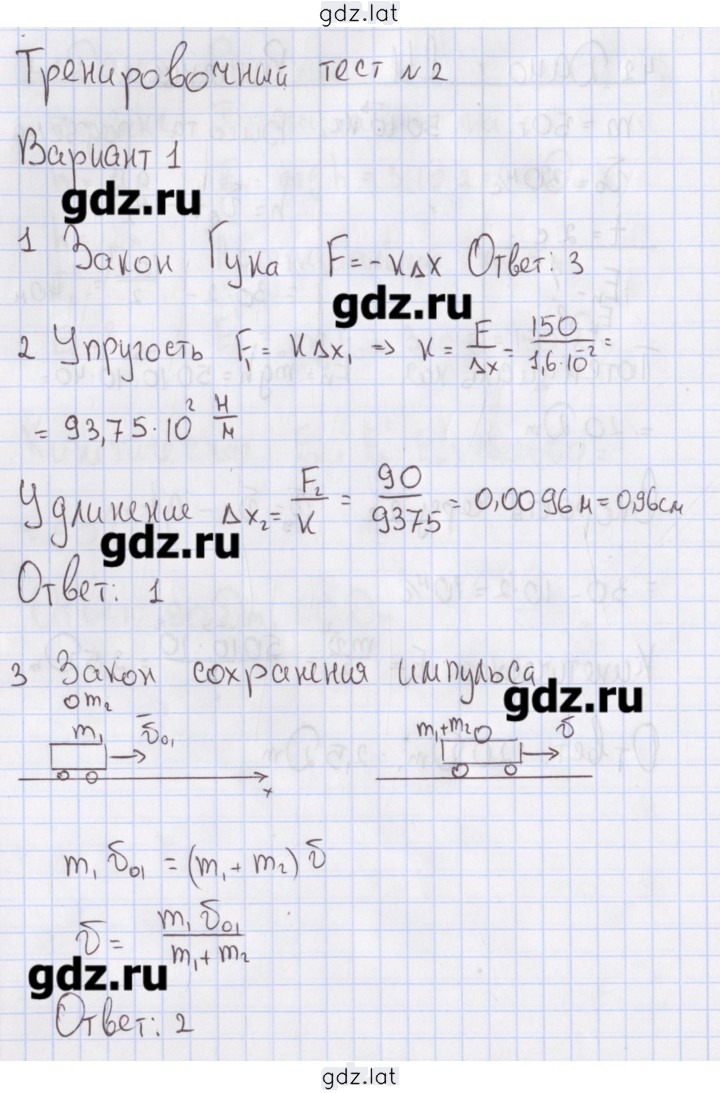 gdz.lat
Тренировочный тест №2
Вариант 1
gdz.ru
1 Закон Гука F = -KΔX Ответ: 3
gdz.ru
2 Упругость F₁ = KΔX₁ => K = F/ΔX = 150/1,6·10⁻² =
= 93,75·10² Н/м
Удлинение ΔX₂ = F₂/K = 90/9375 = 0,0096м = 0,96см
gdz.ru
Ответ: 1
3 Закон сохранения импульса
gdz.ru
m₂
m₁ v̄₀₁ m₁+m₂ v̄
x
m₁ v̄₀₁ = (m₁ + m₂) v̄
v̄ = m₁ v̄₀₁/m₁ + m₂
gdz.ru
Ответ: 2
gdz.lat